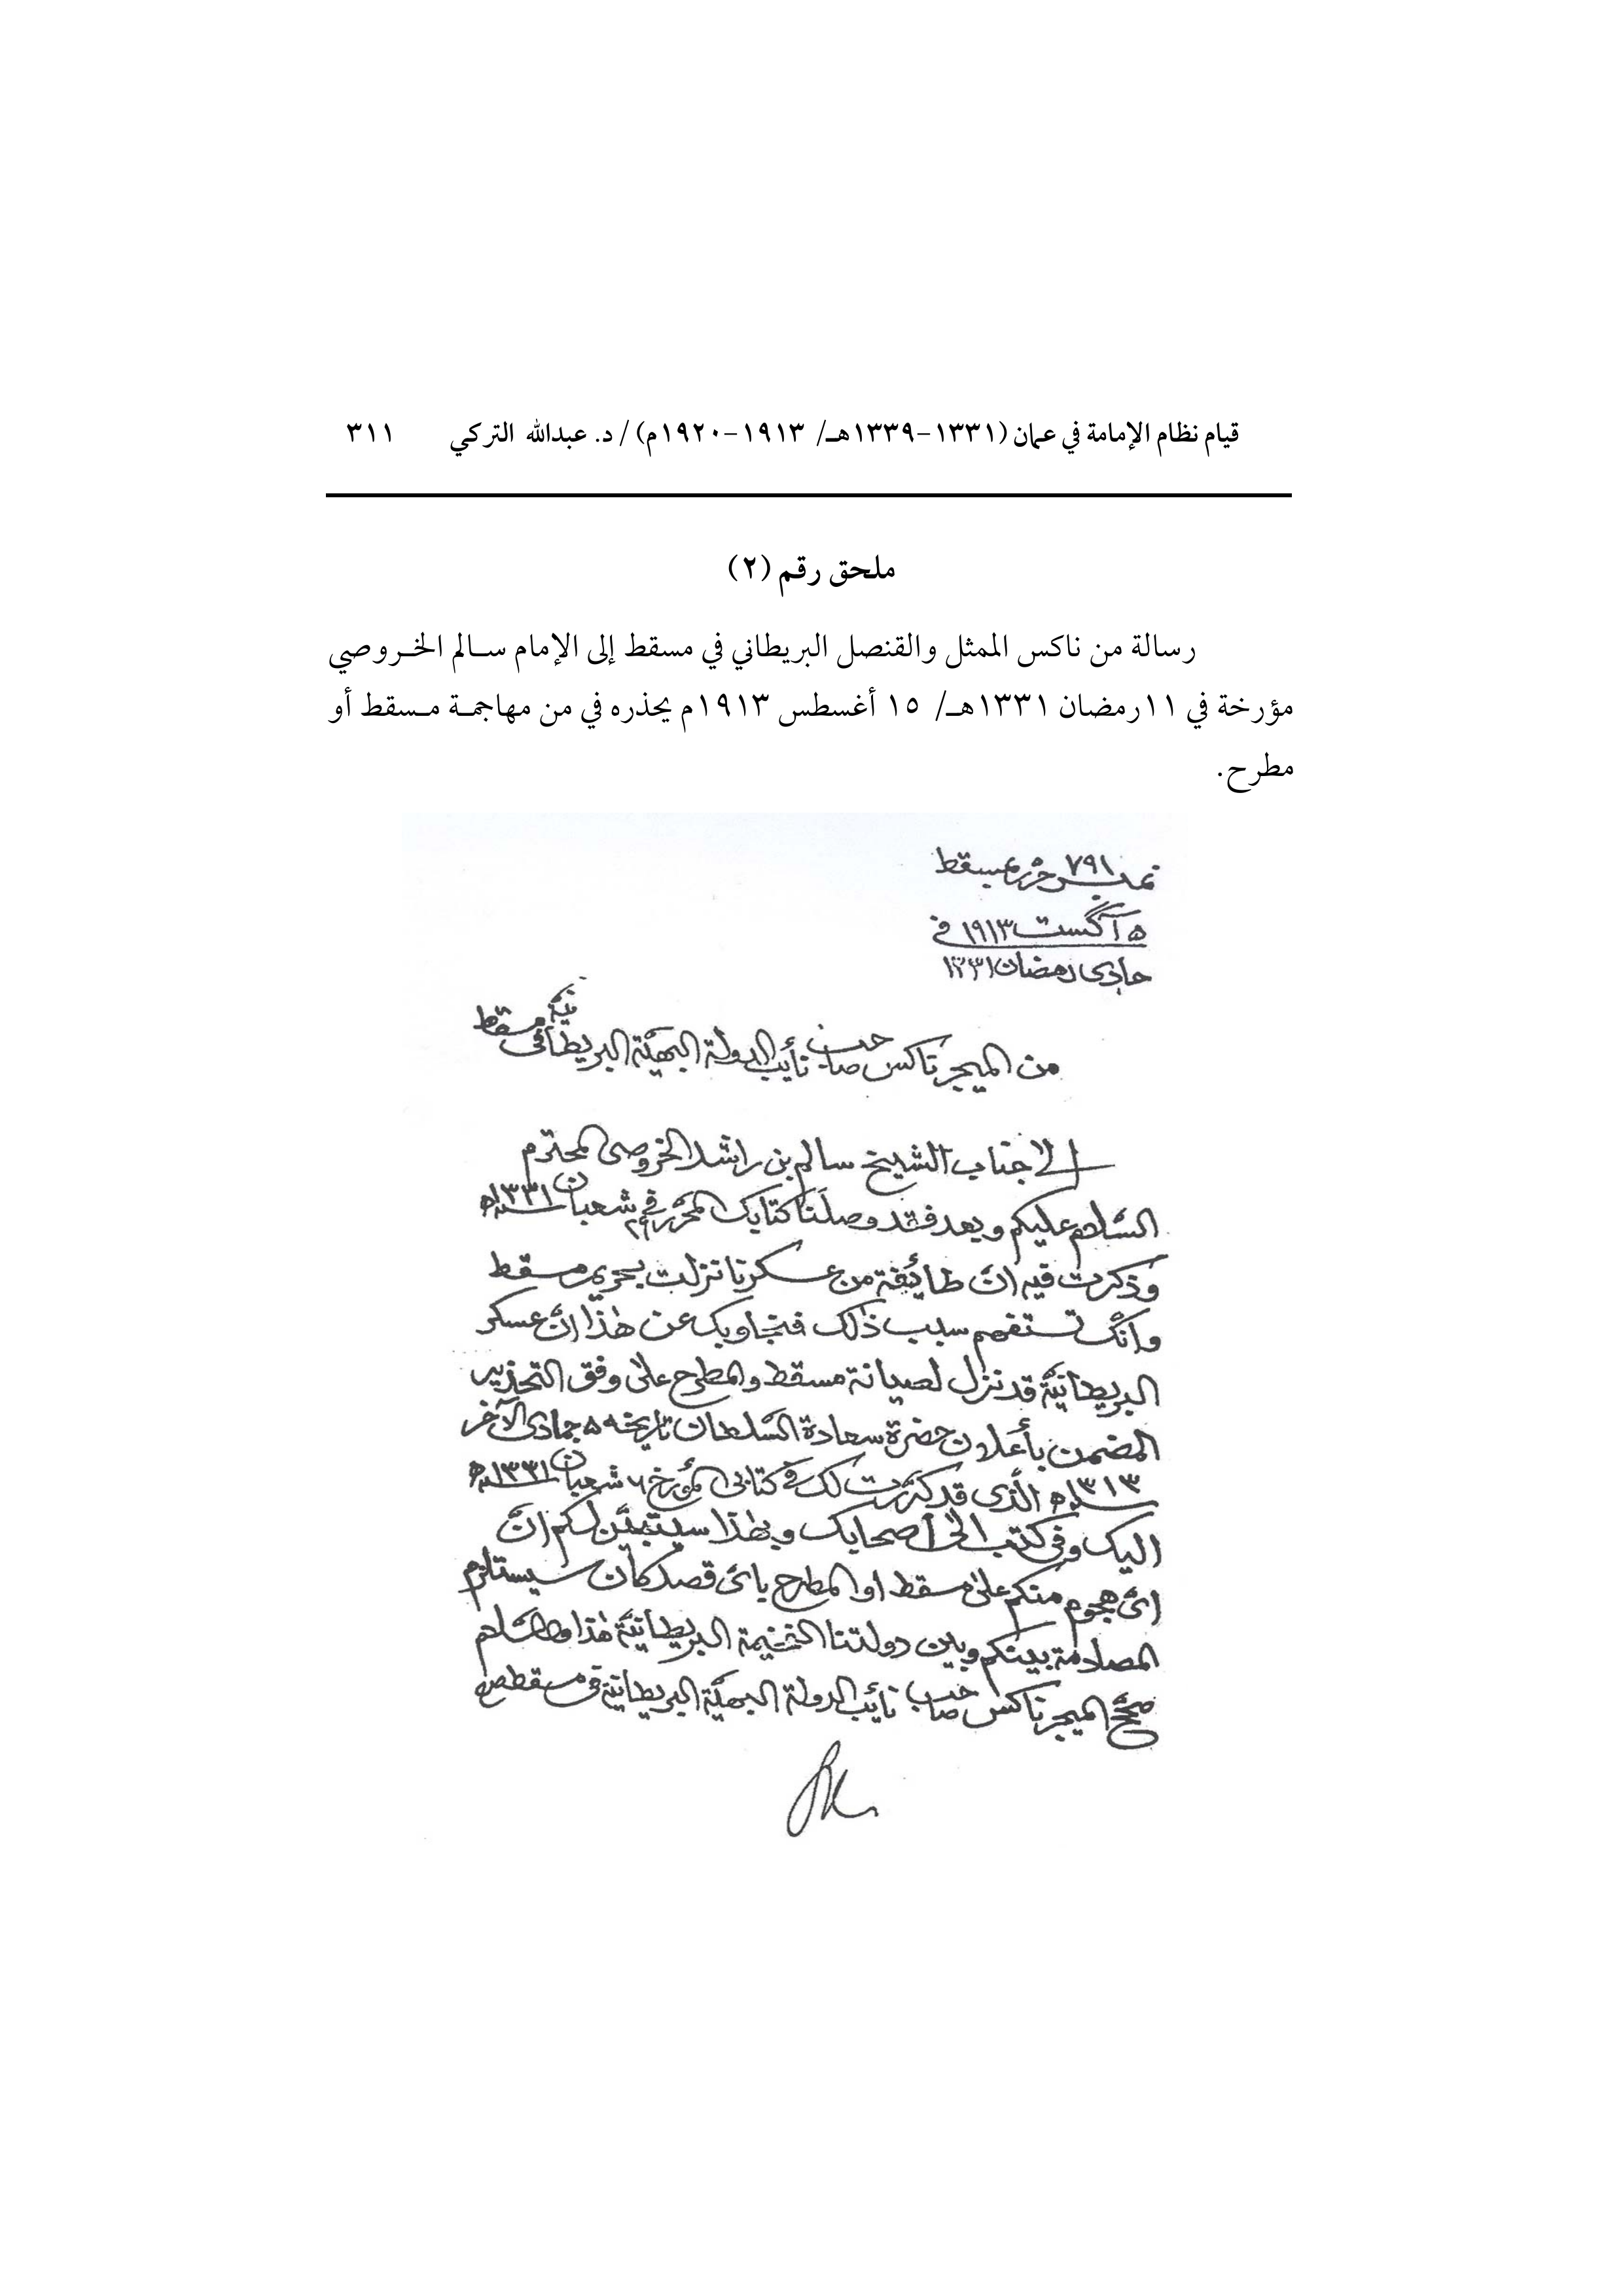 قيام نظام الإمامة في عمان (١٣٣١-١٣٣٩هـ/ ١٩١٣-١٩٢٠م) / د. عبدالله التركي ٣١١
ملحق رقم (٢)
رسالة من ناكس الممثل والقنصل البريطاني في مسقط إلى الإمام سالم الخروصي
مؤرخة في ١١رمضان ١٣٣١هـ/ ١٥ أغسطس ١٩١٣م يحذره في من مهاجمة مسقط أو
مطرح.
نمبر ٧٩١ حرر بمسقط
١٥ آگست ١٩١٣ في
حادى رمضان ١٣٣١
من الميجر ناكس صاحب نائب الدولة البهيّة البريطانيّة في مسقط
الى جناب الشيخ سالم بن راشد الخروصى المحترم
السّلام عليكم وبعد فقد وصلنا كتابك المحرّر في ٢٩ شعبان سنه ١٣٣١ه
وذكرت فيه انّ طائفة من عسكرنا نزلت بحريم مسقط
وانّك تستفهم سبب ذالك فنجاوبك عن هذا انّ عسكر
البريطانيّة قد نزل لصيانة مسقط والمطرح على وفق التحذير
المضمن بأعلان حضرة سعادة السّلطان تاريخه ٥ جمادى الآخر
سنه ١٣١٣ه الّذى قد كرّرت لك في كتابى المؤرخ ٦ شعبان سنه ١٣٣١ه
اليك وفي كتب الى أصحابك وبهذا سيتبيّن لكم انّ
اىّ هجوم منكم على مسقط او المطرح باىّ قصد كان سيستلزم
المصادمة بينكم وبين دولتنا الفخيمة البريطانيّة هذا والسّلام
صحّ الميجر ناكس صاحب نائب الدولة البهيّة البريطانيّة في مسقط